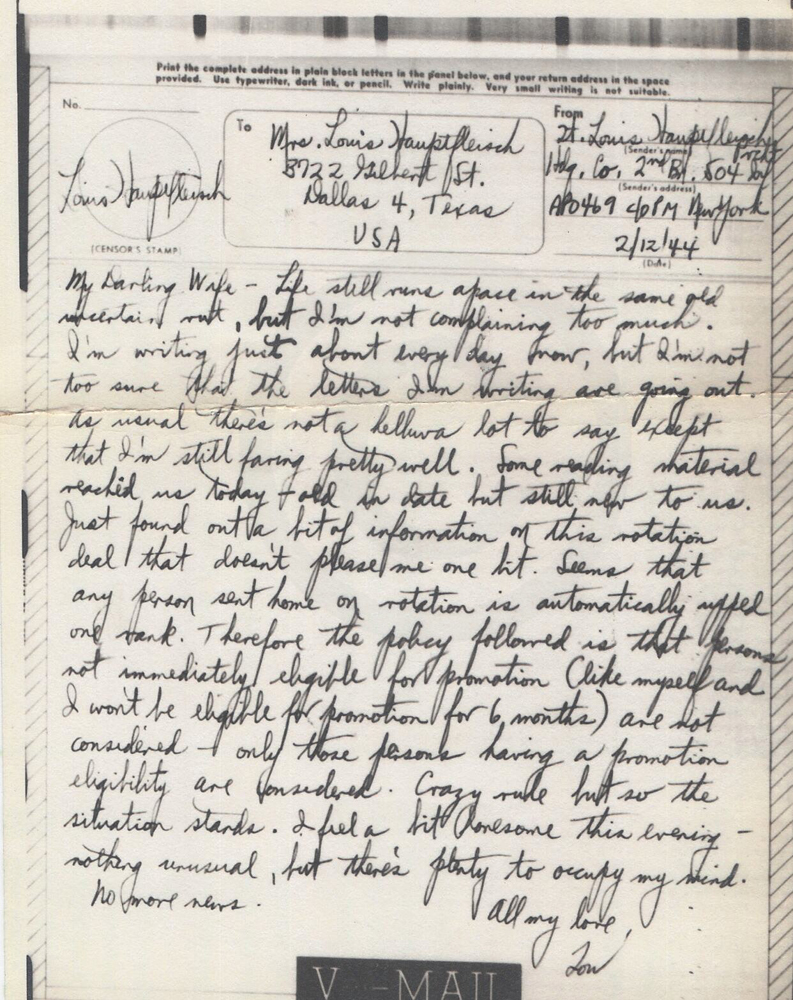 Print the complete address in plain block letters in the panel below, and your return address in the space
provided. Use typewriter, dark ink, or pencil. Write plainly. Very small writing is not suitable.
No.
To
From
Mrs. Louis Hauptfleisch
3722 Gilbert St.
Dallas 4, Texas
USA
Lt. Louis Hauptfleisch
(Sender's name)
Hdq. Co. 2nd Bn. 504
(Sender's address)
APO 469 c/o PM New York
2/12/44
(Date)
Louis Hauptfleisch
(CENSOR'S STAMP)
My Darling Wife - Life still runs apace in the same old
uncertain rut, but I'm not complaining too much.
I'm writing just about every day now, but I'm not
too sure that the letters I'm writing are going out.
As usual there's not a helluva lot to say except
that I'm still faring pretty well. Some reading material
reached us today - old in date but still new to us.
Just found out a bit of information on this rotation
deal that doesn't please me one bit. Seems that
any person sent home on rotation is automatically upped
one rank. Therefore the policy followed is that persons
not immediately eligible for promotion (like myself and
I won't be eligible for promotion for 6 months) are not
considered - only those persons having a promotion
eligibility are considered. Crazy rule but so the
situation stands. I feel a bit lonesome this evening -
nothing unusual, but there's plenty to occupy my mind.
No more news.
All my love,
Lou
V - MAIL